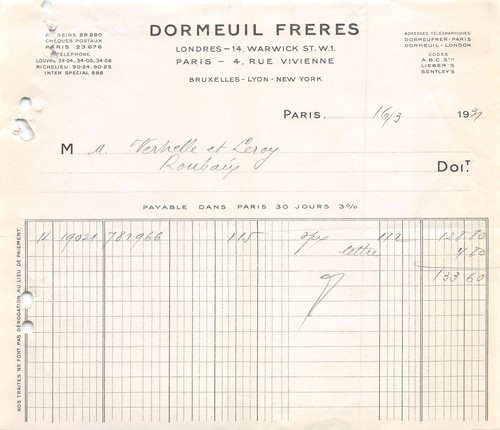 DORMEUIL FRERES
LONDRES – 14, WARWICK ST. W.1.
PARIS – 4, RUE VIVIENNE
BRUXELLES - LYON - NEW YORK
SEINE 29.280
CHÈQUES POSTAUX
PARIS 23.676
TÉLÉPHONE
LOUVRE 34-04, 34-05, 34-06
RICHELIEU 90-24, 90-25
INTER SPÉCIAL 888
ADRESSES TÉLÉGRAPHIQUES
DORMEUFRER - PARIS
DORMEUIL - LONDON
CODES
A.B.C. 5TH
LIEBER'S
BENTLEY'S
PARIS, 16/3 193
M M. Verhelle et Leroy
Roubaix
DOIT
PAYABLE DANS PARIS 30 JOURS 3%
11 19024 789966 115 112 128 80
lettre 4 80
133 60
NOS TRAITES NE FONT PAS DÉROGATION AU LIEU DE PAIEMENT